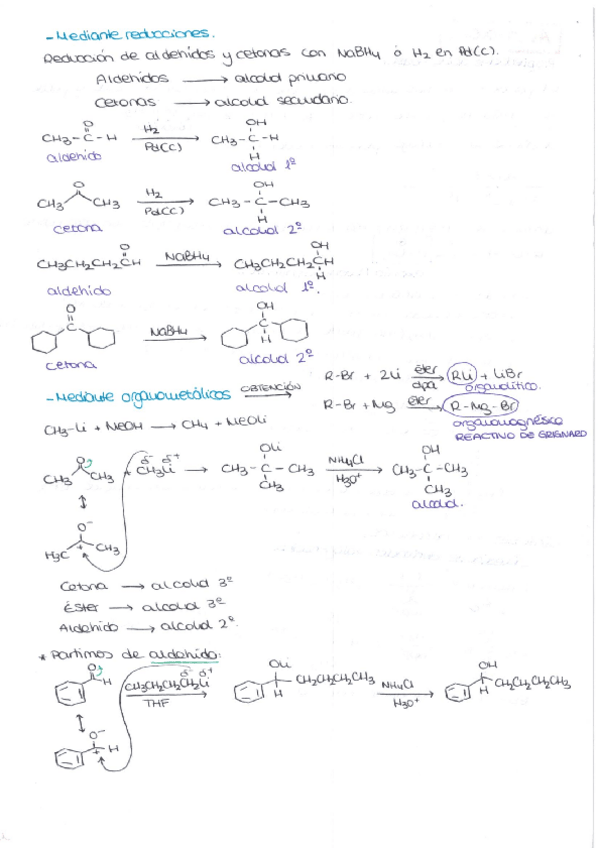 - Mediante reducciones.
Reducción de aldehidos y cetonas con NaBH4 ó H2 en Pd(C).
Aldehidos → alcohol primario
Cetonas → alcohol secundario.
O OH
CH3-C-H H2 Pd(C) → CH3-C-H
H
aldehido alcohol 1º
O OH
CH3 CH3 H2 Pd(C) → CH3-C-CH3
H
cetona alcohol 2º
O OH
CH3CH2CH2CH NaBH4 → CH3CH2CH2CH
H
aldehido alcohol 1º.
O OH
C NaBH4 → C
H
cetona alcohol 2º
- Mediante organometálicos OBTENCIÓN →
R-Br + 2Li éter → RLi + LiBr
organolítico.
R-Br + Mg éter → R-Mg-Br
organomagnésico
REACTIVO DE GRIGNARD
CH3-Li + MeOH → CH4 + MeOLi
O δ- δ+ OLi OH
CH3 CH3 + CH3Li → CH3-C-CH3 NH4Cl H3O+ → CH3-C-CH3
CH3 CH3
alcohol.
O-
H3C + CH3
Cetona → alcohol 3º
Éster → alcohol 3º
Aldehido → alcohol 2º.
* Partimos de aldehido:
O δ- δ+ OLi OH
H CH3CH2CH2CH2Li THF → CH2CH2CH2CH3 NH4Cl H3O+ → CH2CH2CH2CH3
H H
O-
C H
+